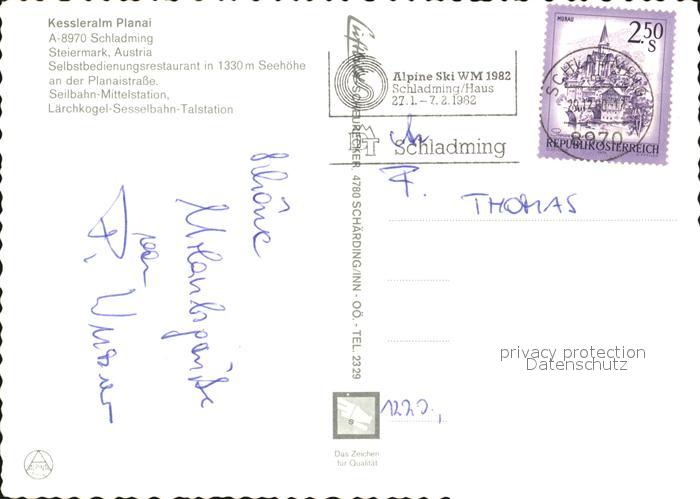 Kessleralm Planai
A-8970 Schladming
Steiermark, Austria
Selbstbedienungsrestaurant in 1330 m Seehöhe
an der Planaistraße.
Seilbahn-Mittelstation,
Lärchkogel-Sesselbahn-Talstation
Alpine Ski WM 1982
Schladming/Haus
27.1.–7.2.1982
Schladming
MURAU
2.50
S
8970
REPUBLIK ÖSTERREICH
4780 SCHÄRDING/INN - OÖ. - TEL. 2329
Schöne
Urlaubsgrüße
F. THOMAS
1220,
privacy protection
Datenschutz
Das Zeichen
für Qualität